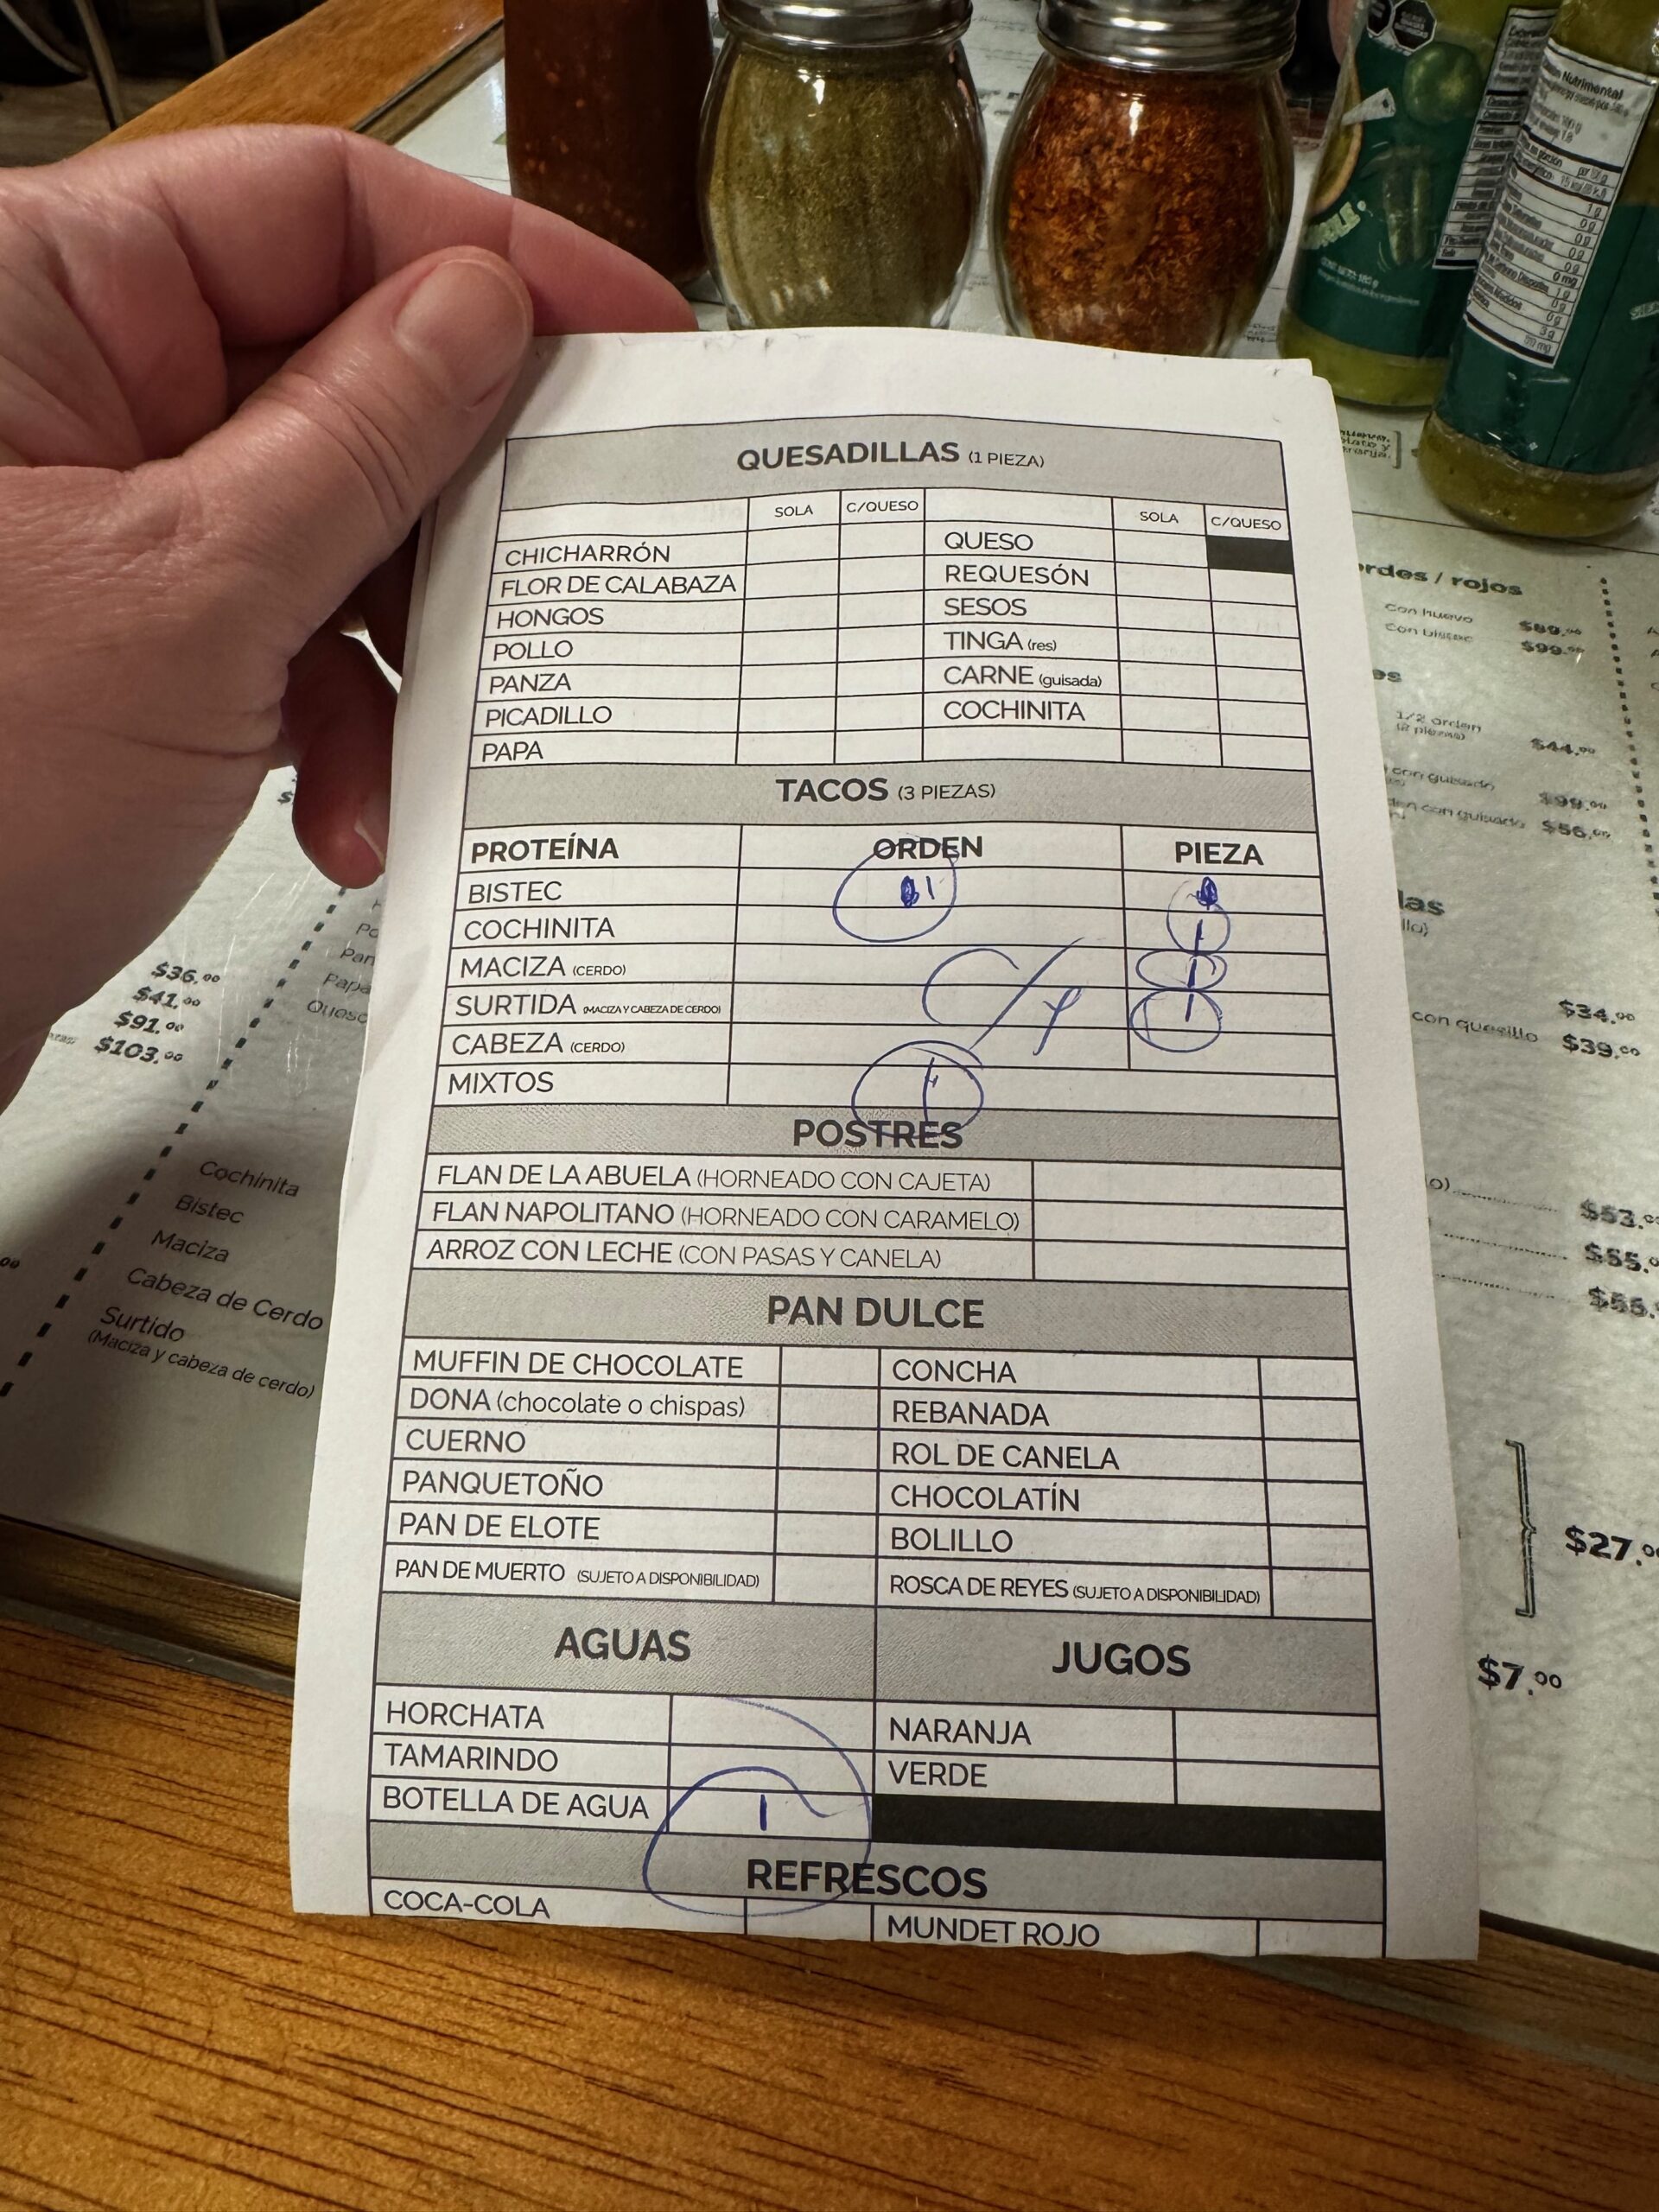 QUESADILLAS (1 PIEZA)
SOLA C/QUESO SOLA C/QUESO
CHICHARRÓN QUESO
FLOR DE CALABAZA REQUESÓN
HONGOS SESOS
POLLO TINGA (res)
PANZA CARNE (guisada)
PICADILLO COCHINITA
PAPA
TACOS (3 PIEZAS)
PROTEÍNA ORDEN PIEZA
BISTEC 1
COCHINITA 1
MACIZA (CERDO) 1
SURTIDA (MACIZA Y CABEZA DE CERDO) 1
CABEZA (CERDO)
MIXTOS 1
POSTRES
FLAN DE LA ABUELA (HORNEADO CON CAJETA)
FLAN NAPOLITANO (HORNEADO CON CARAMELO)
ARROZ CON LECHE (CON PASAS Y CANELA)
PAN DULCE
MUFFIN DE CHOCOLATE CONCHA
DONA (chocolate o chispas) REBANADA
CUERNO ROL DE CANELA
PANQUETOÑO CHOCOLATÍN
PAN DE ELOTE BOLILLO
PAN DE MUERTO (SUJETO A DISPONIBILIDAD) ROSCA DE REYES (SUJETO A DISPONIBILIDAD)
AGUAS JUGOS
HORCHATA NARANJA
TAMARINDO VERDE
BOTELLA DE AGUA 1
REFRESCOS
COCA-COLA MUNDET ROJO
$36.00
$41.00
$91.00
$103.00
Cochinita
Bistec
Maciza
Cabeza de Cerdo
Surtido
(Maciza y cabeza de cerdo)
Nutrimental
rdes / rojos
con huevo $89.00
con bistec $99.00
1/2 orden
(2 piezas) $44.00
con guisado $99.00
con guisado $56.00
las
$34.00
con quesillo $39.00
$53.00
$55.
$55.
$27.00
$7.00